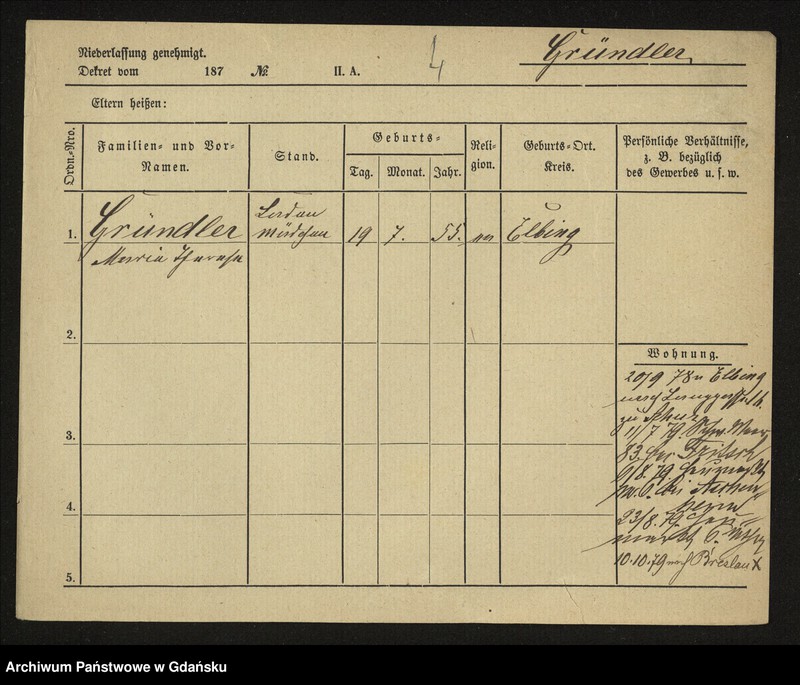 Niederlassung genehmigt.
Dekret vom 187 No. II. A.
4
Gründler
Eltern heißen:
Ordn.-Nro.
Familien- und Vor-
Namen.
Stand.
Geburts-
Tag. Monat. Jahr.
Reli-
gion.
Geburts-Ort.
Kreis.
Persönliche Verhältnisse,
z. B. bezüglich
des Gewerbes u. s. w.
1. Gründler
Maria Therese
Laden
mädchen
19 7. 55. Elbing
2.
3.
4.
5.
Wohnung.
20/9 78 v Elbing
nach
zu
11/7 79.
83. bei Fritsch
/8. 79.
No. 6. bei
23/8. 79.
6.
10.10.79 nach Breslau X
Archiwum Państwowe w Gdańsku